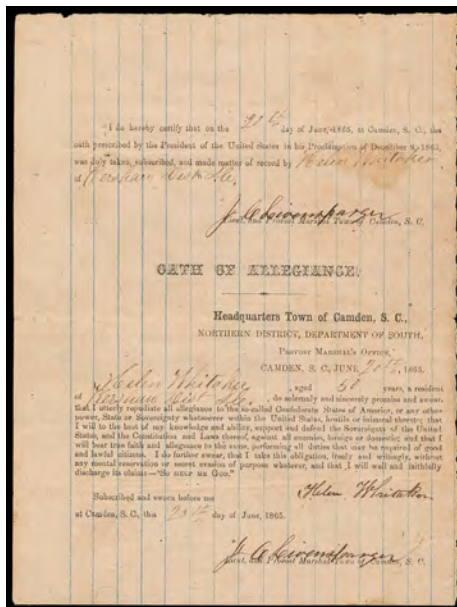 I do hereby certify that on the 20th day of June, 1865, at Camden, S. C., the
oath prescribed by the President of the United States in his Proclamation of December 8, 1863,
was duly taken, subscribed, and made matter of record by Helen Whitaker
of Kershaw Dist
Lieut. and Provost Marshal Town of Camden, S. C.
OATH OF ALLEGIANCE.
Headquarters Town of Camden, S. C.,
NORTHERN DISTRICT, DEPARTMENT OF SOUTH,
PROVOST MARSHAL'S OFFICE,
CAMDEN, S. C., JUNE 20th, 1865.
Helen Whitaker, aged 50 years, a resident
of Kershaw Dist, do solemnly and sincerely promise and swear,
that I utterly repudiate all allegiance to the so-called Confederate States of America, or any other
power, State or Sovereignty whatsoever within the United States, hostile or inimical thereto; that
I will to the best of my knowledge and ability, support and defend the Sovereignty of the United
States, and the Constitution and Laws thereof, against all enemies, foreign or domestic; and that I
will bear true faith and allegiance to the same, performing all duties that may be required of good
and lawful citizens. I do further swear, that I take this obligation, freely and willingly, without
any mental reservation or secret evasion of purpose whatever, and that I will well and faithfully
discharge its claims—"SO HELP ME GOD."
Helen Whitaker
Subscribed and sworn before me
at Camden, S. C., this 20th day of June, 1865.
Lieut. and Provost Marshal Town of Camden, S. C.